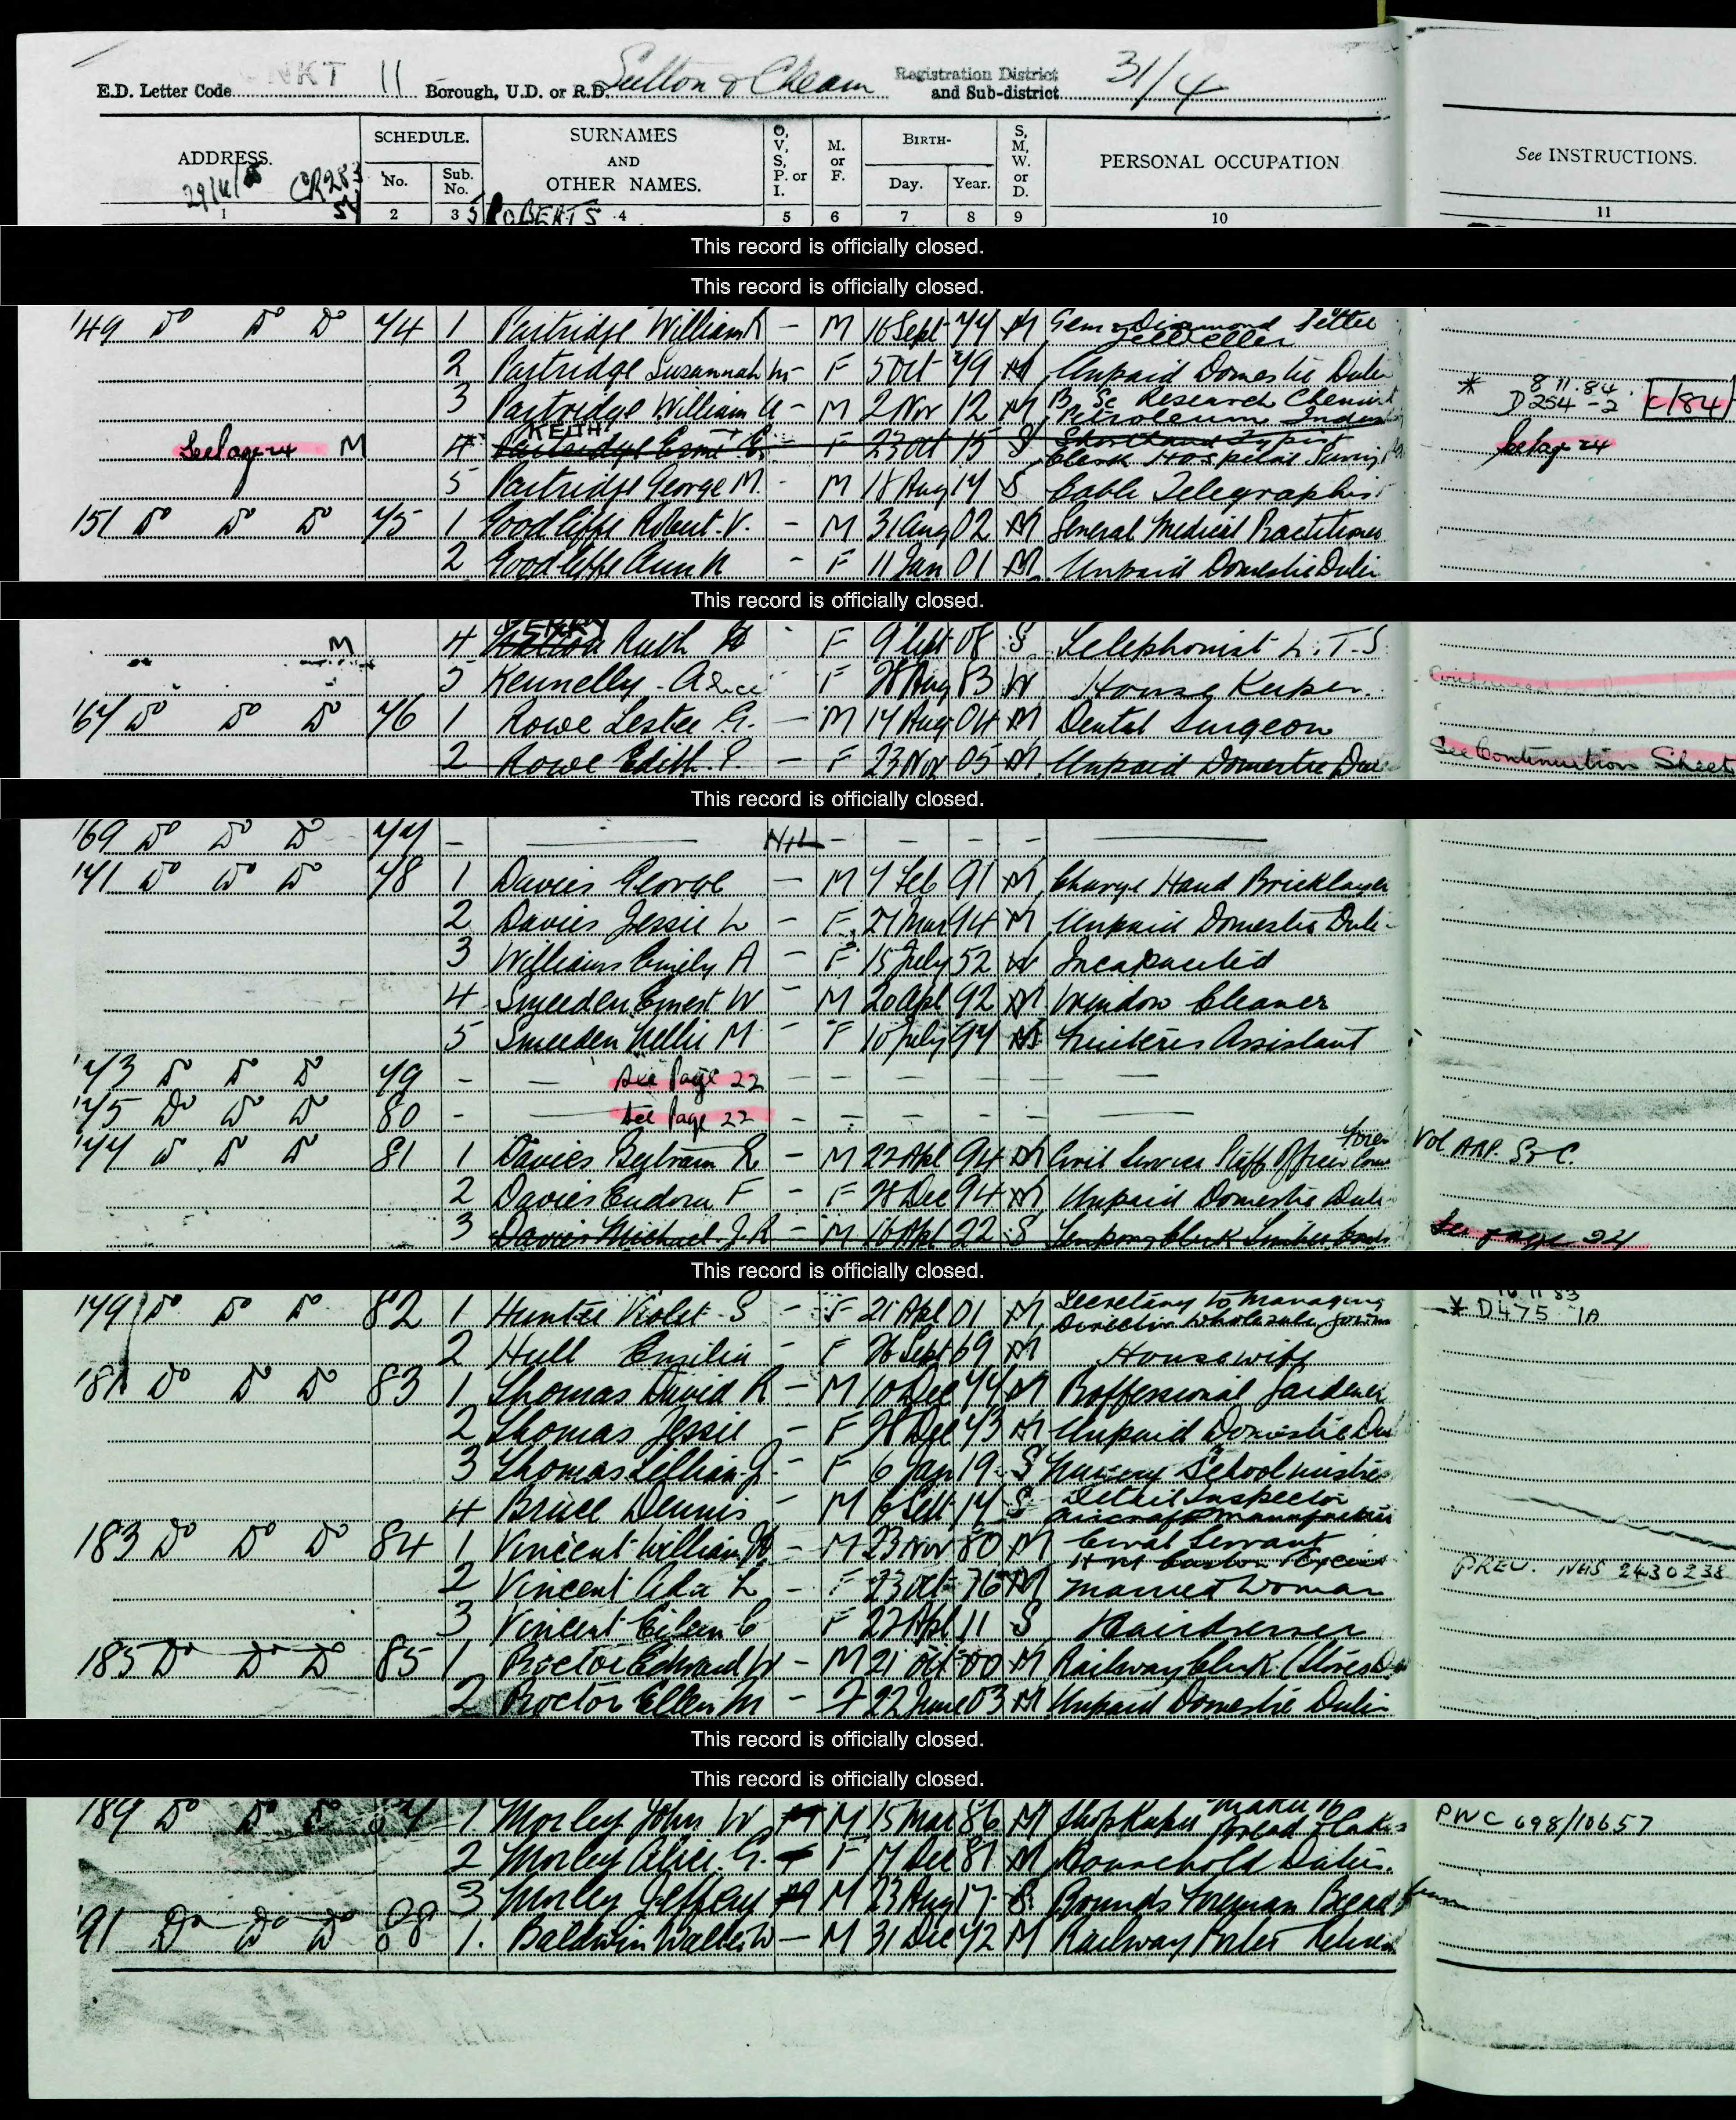 E.D. Letter Code NKT 11 Borough, U.D. or R.D. Sutton & Cheam Registration District and Sub-district 31/4
ADDRESS. SCHEDULE. No. Sub. No. SURNAMES AND OTHER NAMES. O, V, S, P. or I. M. or F. BIRTH- Day. Year. S, M, W. or D. PERSONAL OCCUPATION See INSTRUCTIONS.
CR283
1 2 3 4 5 6 7 8 9 10 11
ROBERTS
This record is officially closed.
This record is officially closed.
149 Do Do Do 74 1 Partridge William R - M 16 Sept 77 M Gem & Diamond Setter Jeweller
2 Partridge Susannah M - F 5 Oct 79 M Unpaid Domestic Duties
3 Partridge William - M 2 Nov 12 M B. Sc Research Chemist Petroleum * 8 11.84. D254-2
See Page 24 M 4 KEITH Partridge F 23 Oct 15 S Shorthand Typist Clerk Hospital See Page 24
5 Partridge George M. - M 18 Aug 17 S Cable Telegraphist
151 Do Do Do 75 1 Goodliffe Robert V. - M 31 Aug 02 M General Medical Practitioner
2 Goodliffe Ann - F 11 Jan 01 M Unpaid Domestic Duties
This record is officially closed.
M 4 Ruth F 9 Sept 08 S Telephonist L.T.S
5 Kennelly Alice - F 28 Aug 83 W House Keeper.
167 Do Do Do 76 1 Rowe Lester G. - M 14 Aug 04 M Dental Surgeon
2 Rowe Edith - F 23 Nov 05 M Unpaid Domestic See Continuation Sheet
This record is officially closed.
169 Do Do Do 77 - NIL - - - -
171 Do Do Do 78 1 Davies George - M 7 Feb 91 M Charge Hand Bricklayer
2 Davies Jessie L - F 27 Mar 94 M Unpaid Domestic Duties
3 Williams Emily A - F 15 July 52 W Incapacited
4 Smeeden Ernest W - M 20 Apl 92 M Window Cleaner
5 Smeeden Nellie M - F 10 July 97 M Assistant
173 Do Do Do 79 - See Page 22 - - - - -
175 Do Do Do 80 - See Page 22 - - - - -
177 Do Do Do 81 1 Davies Bertram - M 22 Apl 94 M Civil Service Staff Officer Vol ARP. S & C.
2 Davies Eudora F - F 28 Dec 94 M Unpaid Domestic Duties
3 Davies Michael J.R - M 16 Apl 22 S Clerk See page 24
This record is officially closed.
179 Do Do Do 82 1 Hunter Violet S - F 21 Apl 01 M Secretary to Managing Director Wholesale * D475 1A
2 Hull Emilie - F 26 Sept 69 M Housewife
181 Do Do Do 83 1 Thomas David R - M 10 Dec 74 M Proffessional Gardener
2 Thomas Jessie - F 28 Dec 73 M Unpaid Domestic
3 Thomas Lillian J. - F 6 Jan 19 S Nursery School mistress
4 Bruce Dennis - M 6 Sept 17 S Detail Inspector Aircraft Manufacture
183 Do Do Do 84 1 Vincent William - M 23 Nov 80 M Civil Servant H M Customs & Excise
2 Vincent Ada L - F 23 Oct 76 M Married Woman PREV. NHS 2430238
3 Vincent Eileen C F 22 Apl 11 S Hairdresser
185 Do Do Do 85 1 Proctor Edward W - M 21 Oct 00 M Railway Clerk (Stores
2 Proctor Ellen M - F 22 June 03 M Unpaid Domestic Duties
This record is officially closed.
This record is officially closed.
189 Do Do Do 87 1. Morley John W M 15 Mar 86 M Shop Keeper Maker of Bread & Cakes PWC 698/10657
2 Morley Alice G. F 17 Dec 87 M Household Duties.
3 Morley Jeffery M 23 Aug 17 S Rounds Foreman Bread
191 Do Do Do 88 1. Baldwin Walter W - M 31 Dec 72 M Railway Porter Retired